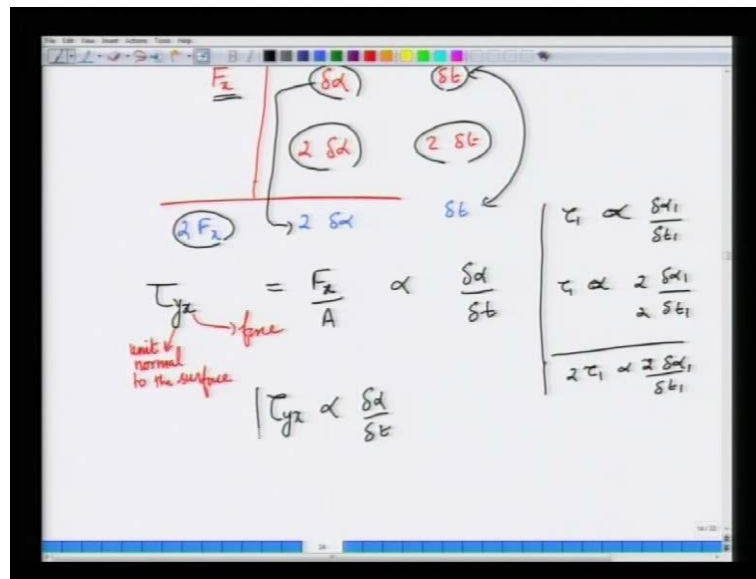 File Edit View Insert Actions Tools Help
F_x δα δt
2 δα 2 δt
2 F_x 2 δα δt
τ_yx = F_x/A ∝ δα/δt
force
unit
normal
to the surface
τ_yx ∝ δα/δt
τ₁ ∝ δα₁/δt₁
τ₁ ∝ 2 δα₁/2 δt₁
2 τ₁ ∝ 2 δα₁/δt₁